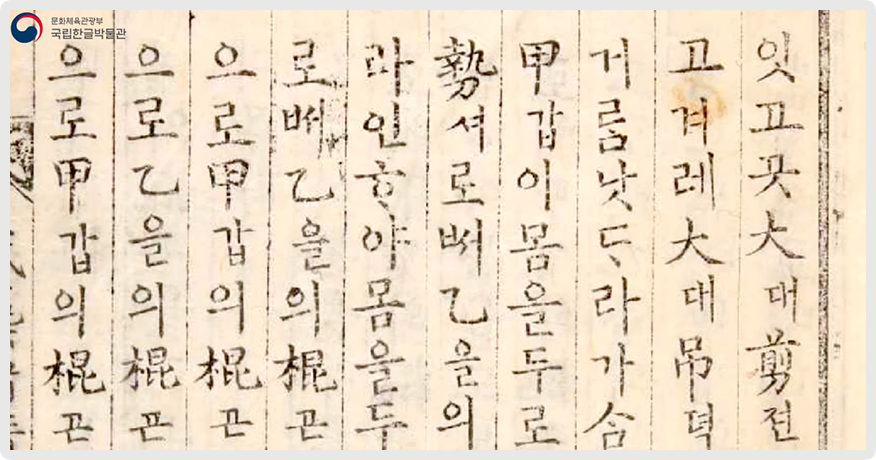 문화체육관광부
국립한글박물관
잇고곳大대剪전
고겨레大대吊뎍
거름낫ᄃᆞ라가合
甲갑이몸을두로
勢셔로ᄡᅥ乙을의
라인ᄒᆞ야몸을두
로ᄡᅥ乙을의棍곤
으로甲갑의棍곤
으로乙을의棍곤
으로甲갑의棍곤